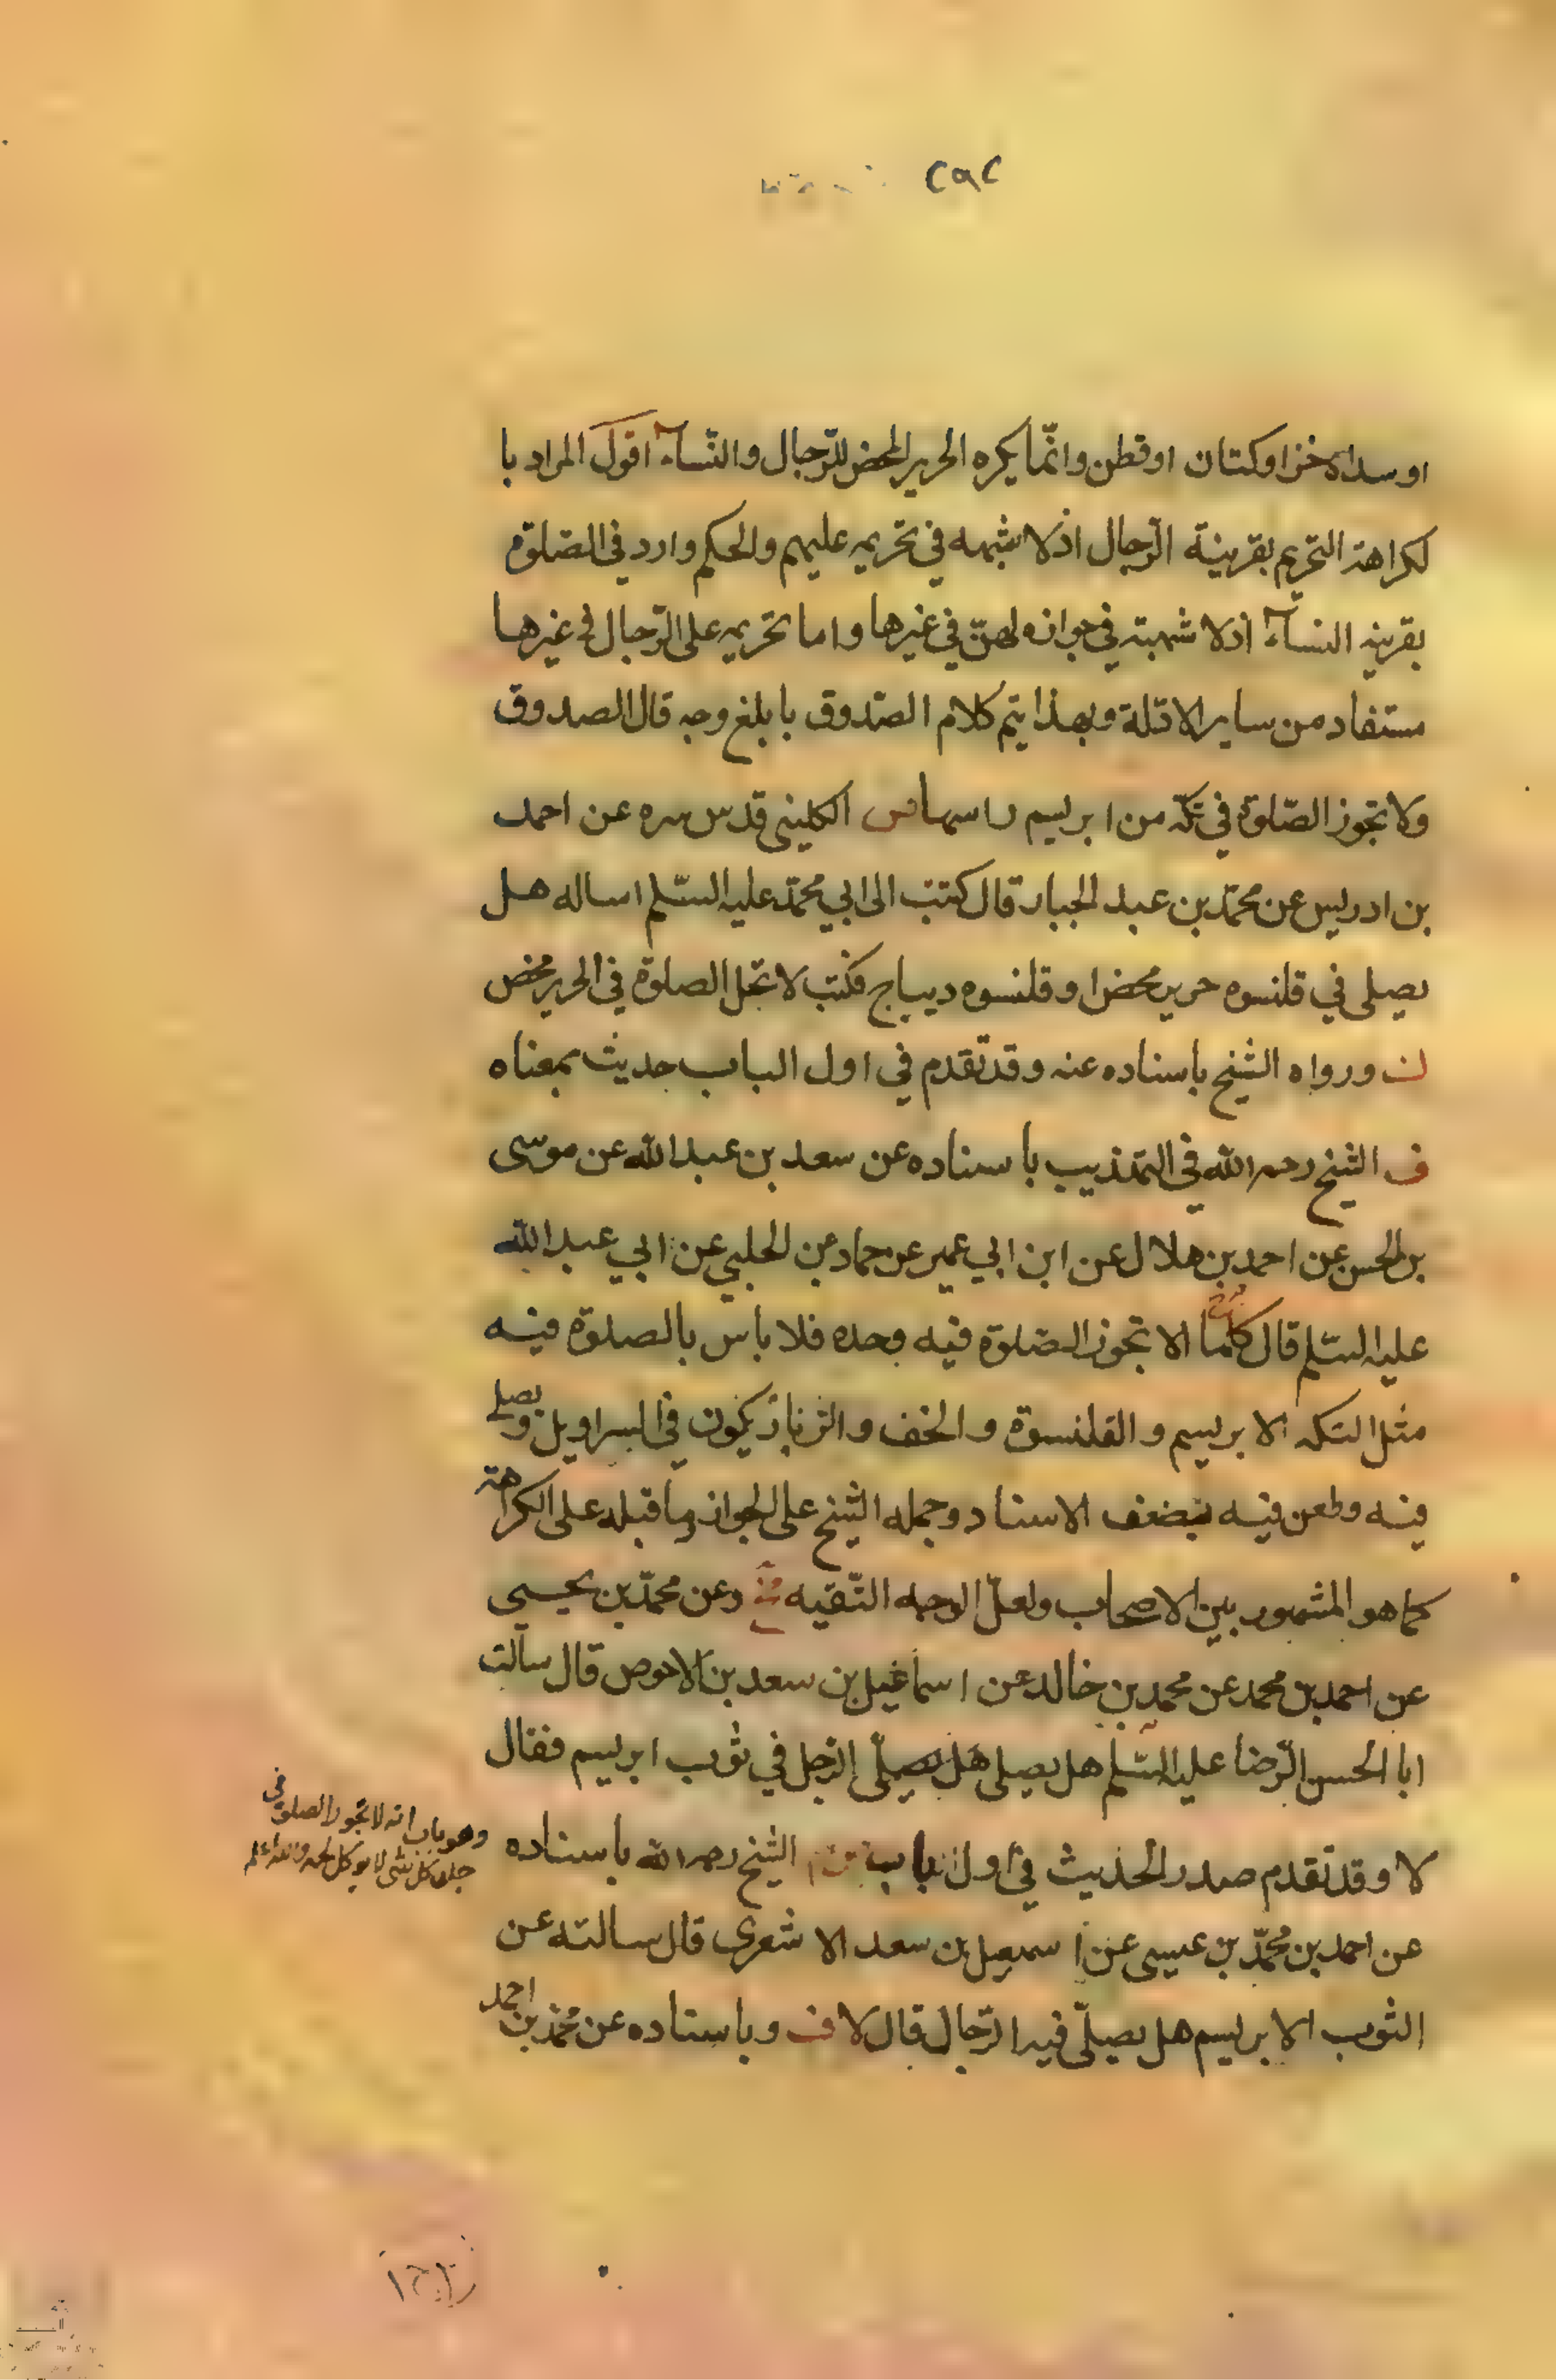 ٢٩٢
او سداه خز او كتان او قطن وانّما يكره الحرير المحض للرّجال والنّسآء اقول المراد با
لكراهة التحريم بقرينة الرّجال اذ لا شبهه في تحريمه عليهم والحكم وارد في الصّلوة
بقرينه النسآء اذ لا شبهته في جوازه لهنّ في غيرها واما تحريمه على الرّجال في غيرها
مستفاد من ساير الادّلة وبهذا يتم كلام الصّدوق با بلغ وجه قال الصدوق
ولا تجوز الصّلوة في تكّة من ابريسم راسها الكلينى قدس سره عن احمد
بن ادريس عن محمّد بن عبد الجبار قال كتبت الى ابي محمّد عليه السّلم اساله هل
يصلى في قلنسوه حرير محض او قلنسوه ديباج فكتب لا تحل الصلوة في الحرير محض
ن ورواه الشيخ باسناده عنه وقد تقدم في اول الباب حديث بمعناه
ف الشيخ رحمه الله في التهذيب با سناده عن سعد بن عبد الله عن موسى
بن الحسن عن احمد بن هلال عن ابن ابي عمير عن حماد عن الحلبي عن ابي عبد الله
عليه السّلم قال كلما الا تجوز الصّلوة فيه وحده فلا باس بالصلوة فيه
مثل التكه الابريسم والقلنسوة والخف والزنار يكون في السراويل ويصلى
فيه وطعن فيه بضعف الاسناد وحمله الشيخ على الجواز وما قبله على الكراهة
كما هو المشهور بين الاصحاب ولعلّ الوجه التّقيه وعن محمّد بن يحيي
عن احمد بن محمد عن محمد بن خالد عن اسماعيل بن سعد بن الاحوص قال سالت
ابا الحسن الرّضا عليه السّلم هل يصلى هل يصلّى الرّجل في ثوب ابريسم فقال
لا وقد تقدم صدر الحديث في اول باب الشيخ رحمه الله باسناده
وهو باب انه لا تجوز الصلوة في
جلد كل شى لا يوكل لحمه والله اعلم
عن احمد بن محمّد بن عيسى عن اسمعيل بن سعد الاشعرى قال سالته عن
الثوب الابريسم هل يصلّى فيه الرّجال قال لا ف وباسناده عن محمّد بن احمد